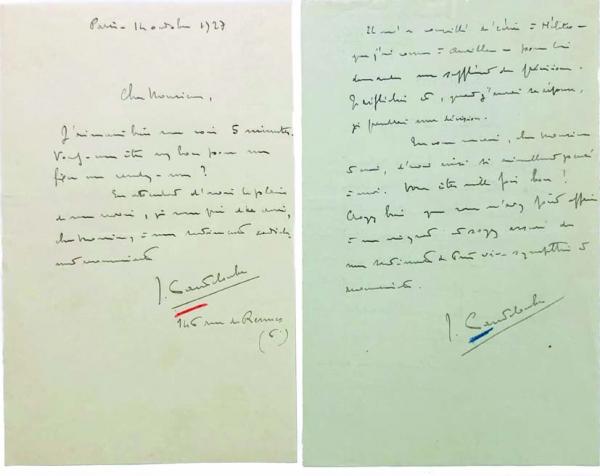 Paris - 14 octobre 1927
Cher Monsieur,
J'aimerais bien vous voir 5 minutes.
Voulez-vous être assez bon pour me
fixer un rendez-vous ?
En attendant d'avoir le plaisir
de vous revoir, je vous prie de croire,
cher Monsieur, à mes sentiments
J. Canteloube
146 rue de Rennes
(6e)
Il m'a conseillé d'écrire à
que j'ai connu à Aurillac - pour lui
demander un supplément de précisions.
et, quand j'aurai sa réponse,
je prendrai une décision.
cher Monsieur
d'avoir ainsi si aimablement pensé
à moi. Vous êtes mille fois bon !
Croyez bien que vous n'avez point affaire
à un ingrat et soyez assuré de
mes sentiments de très vive sympathie et
J. Canteloube